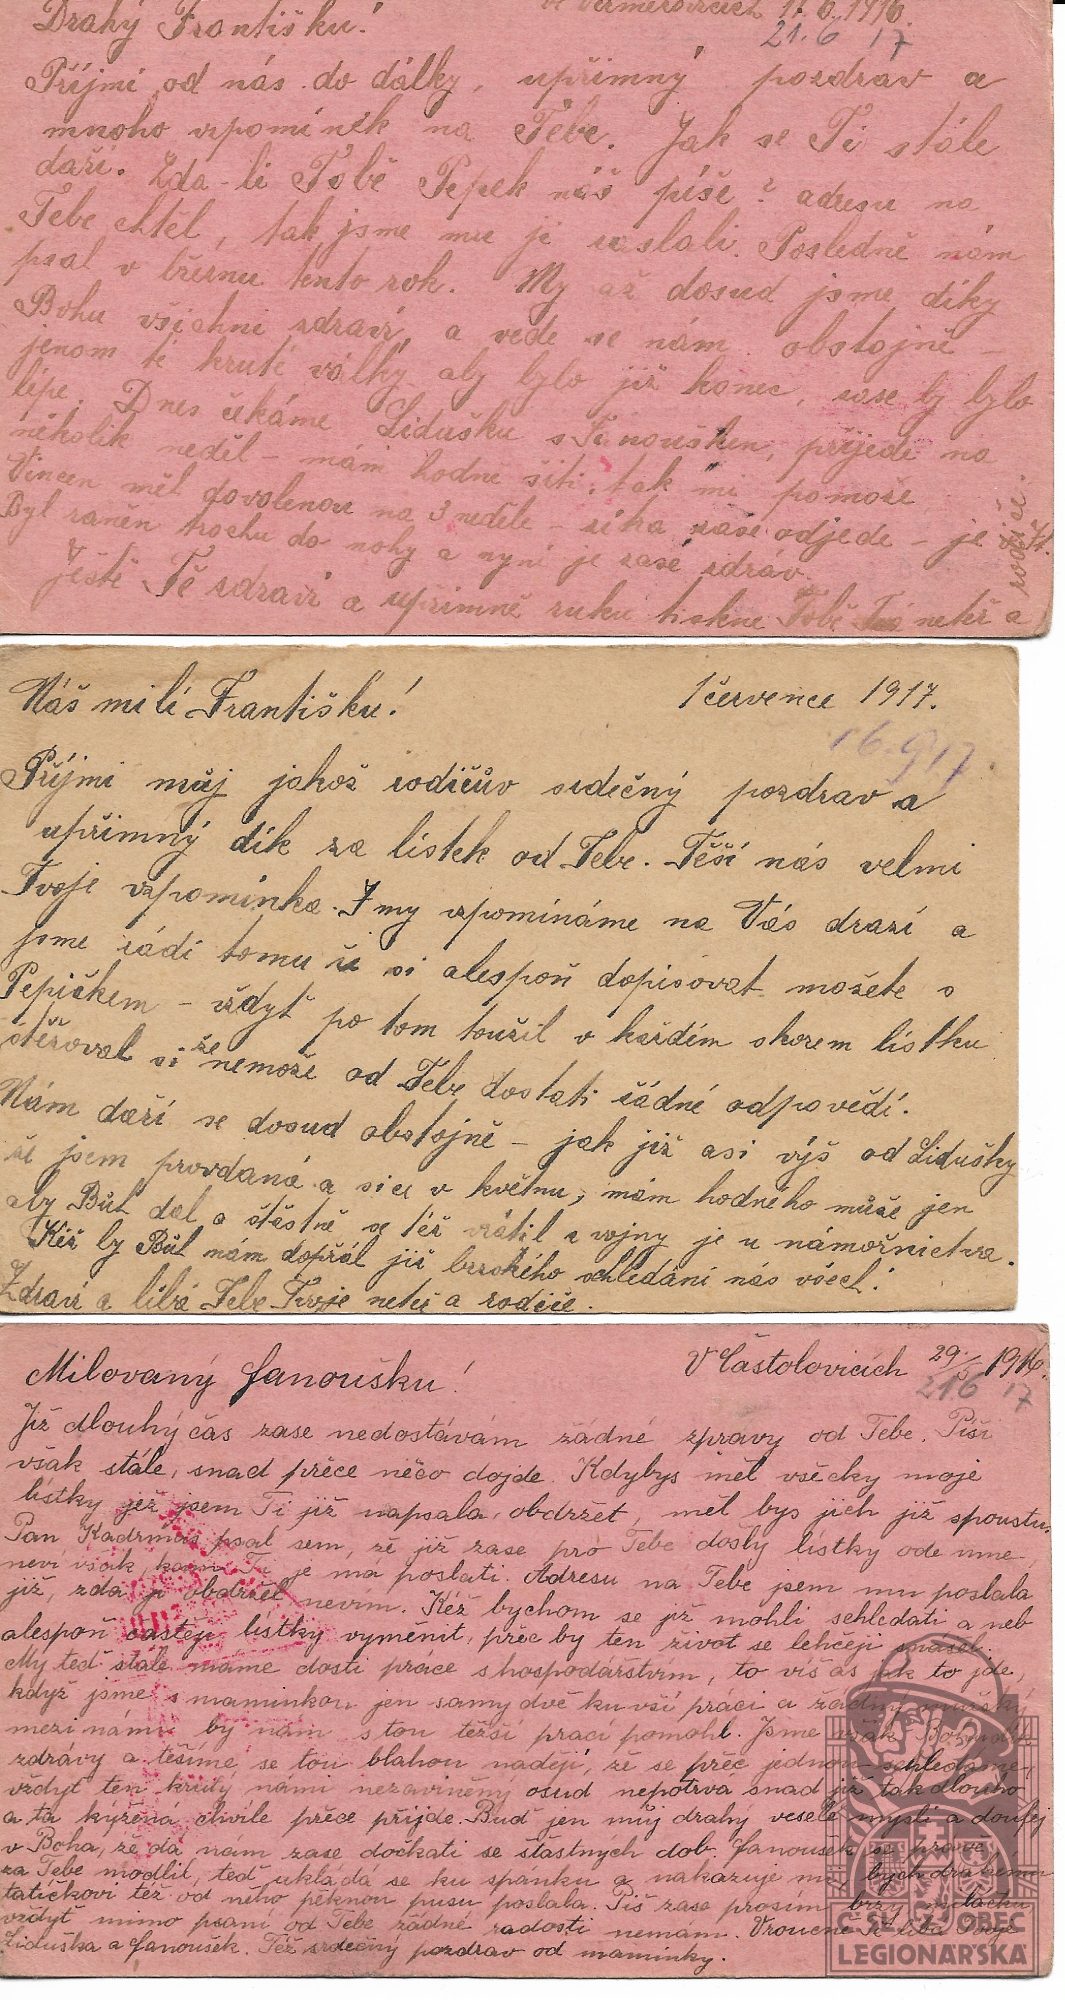 Drahý Františku!
17. 6. 1916.
21. 6 17
Příjmi od nás do dálky, upřimný pozdrav a
mnoho vzpomínek na Tebe. Jak se Ti stále
daří. Zda-li Tobě Pepek náš píše? adresu na
Tebe chtěl, tak jsme mu ji zaslali. Posledně nám
psal v březnu tento rok. My až dosud jsme díky
Bohu všichni zdraví, a vede se nám obstojně –
jenom té kruté války aby bylo již konec, zase by bylo
lépe. Dnes čekáme Lidušku s Fanouškem, přijede na
několik neděl – mám hodně šití, tak mi pomože
Vincen měl dovolenou na 3 neděle – zase odjede – je
Byl raněn trochu do nohy a nyní je zase zdráv.
Ještě Tě zdraví a upřimně ruku tiskne Tobě neteř a
rodiče.
Náš milí Františku!
1 července 1917.
16.9 17
Příjmi můj jakož rodičův srdečný pozdrav a
upřimný dík za lístek od Tebe. Těší nás velmi
Tvoje vzpomínka. I my vzpomínáme na Vás drazí a
jsme rádi tomu že si alespoň dopisovat možete s
Pepíčkem – vždyť po tom toužil v každém skorem lístku
stěžoval si že nemože od Tebe dostati žádné odpovědí.
Nám daří se dosud obstojně – jak již asi výš od Lidušky
že jsem provdaná a sice v květnu, mám hodného muže jen
aby Bůh dal a štěstně se též vrátil z vojny je u námořnictva.
Kéž by Bůh nám dopřál již brzského schledání nás všech!
Zdraví a líbá Tebe Tvoje neteř a rodiče.
Milovaný Fanoušku!
V Častolovicích 29./5 1916.
216 17
Již dlouhý čas zase nedostávám žádné zpravy od Tebe. Píši
však stále, snad přece něco dojde. Kdybys měl všecky moje
lístky jež jsem Ti již napsala, obdržet, měl bys jich již spoustu.
Pan Kadrmas psal sem, že již zase pro Tebe došly lístky ode mne,
neví však, kam Ti je má poslati. Adresu na Tebe jsem mu poslala
již, zda ji obdržel nevím. Kéž bychom se již mohli sehledati a neb
alespoň častěji lístky vyměnit, přec by ten život se lehčeji snášel.
My teď stále máme dosti práce s hospodářstvím, to víš as jak to jde,
když jsme s maminkou jen samy dvě ku vší práci a žádný
mezi námi by nám s tou těžší prací pomohl. Jsme však Bohudík
zdrávy a těšíme se tou blahou nadějí, že se přec jednou schledáme,
vždyt ten krutý námi nezaviněný osud nepotrva snad již tak dlouho
a ta kýžená chvíle přece přijde. Buď jen můj drahý veselé mysli a doufej
v Boha, že dá nám zase dočkati se šťastnych dob. Fanoušek se právě
za Tebe modlil, teď ukládá se ku spanku a nakazuje mi, bych drahému
tatíčkovi též od něho pěknou pusu poslala. Piš zase prosím brzy
vždyť mimo psaní od Tebe žádné radosti nemám. Vroucně Tě líbá Tvoje
Liduška a Fanoušek. Též srdečný pozdrav od maminky.
ČSL. OBEC
LEGIONÁŘSKÁ